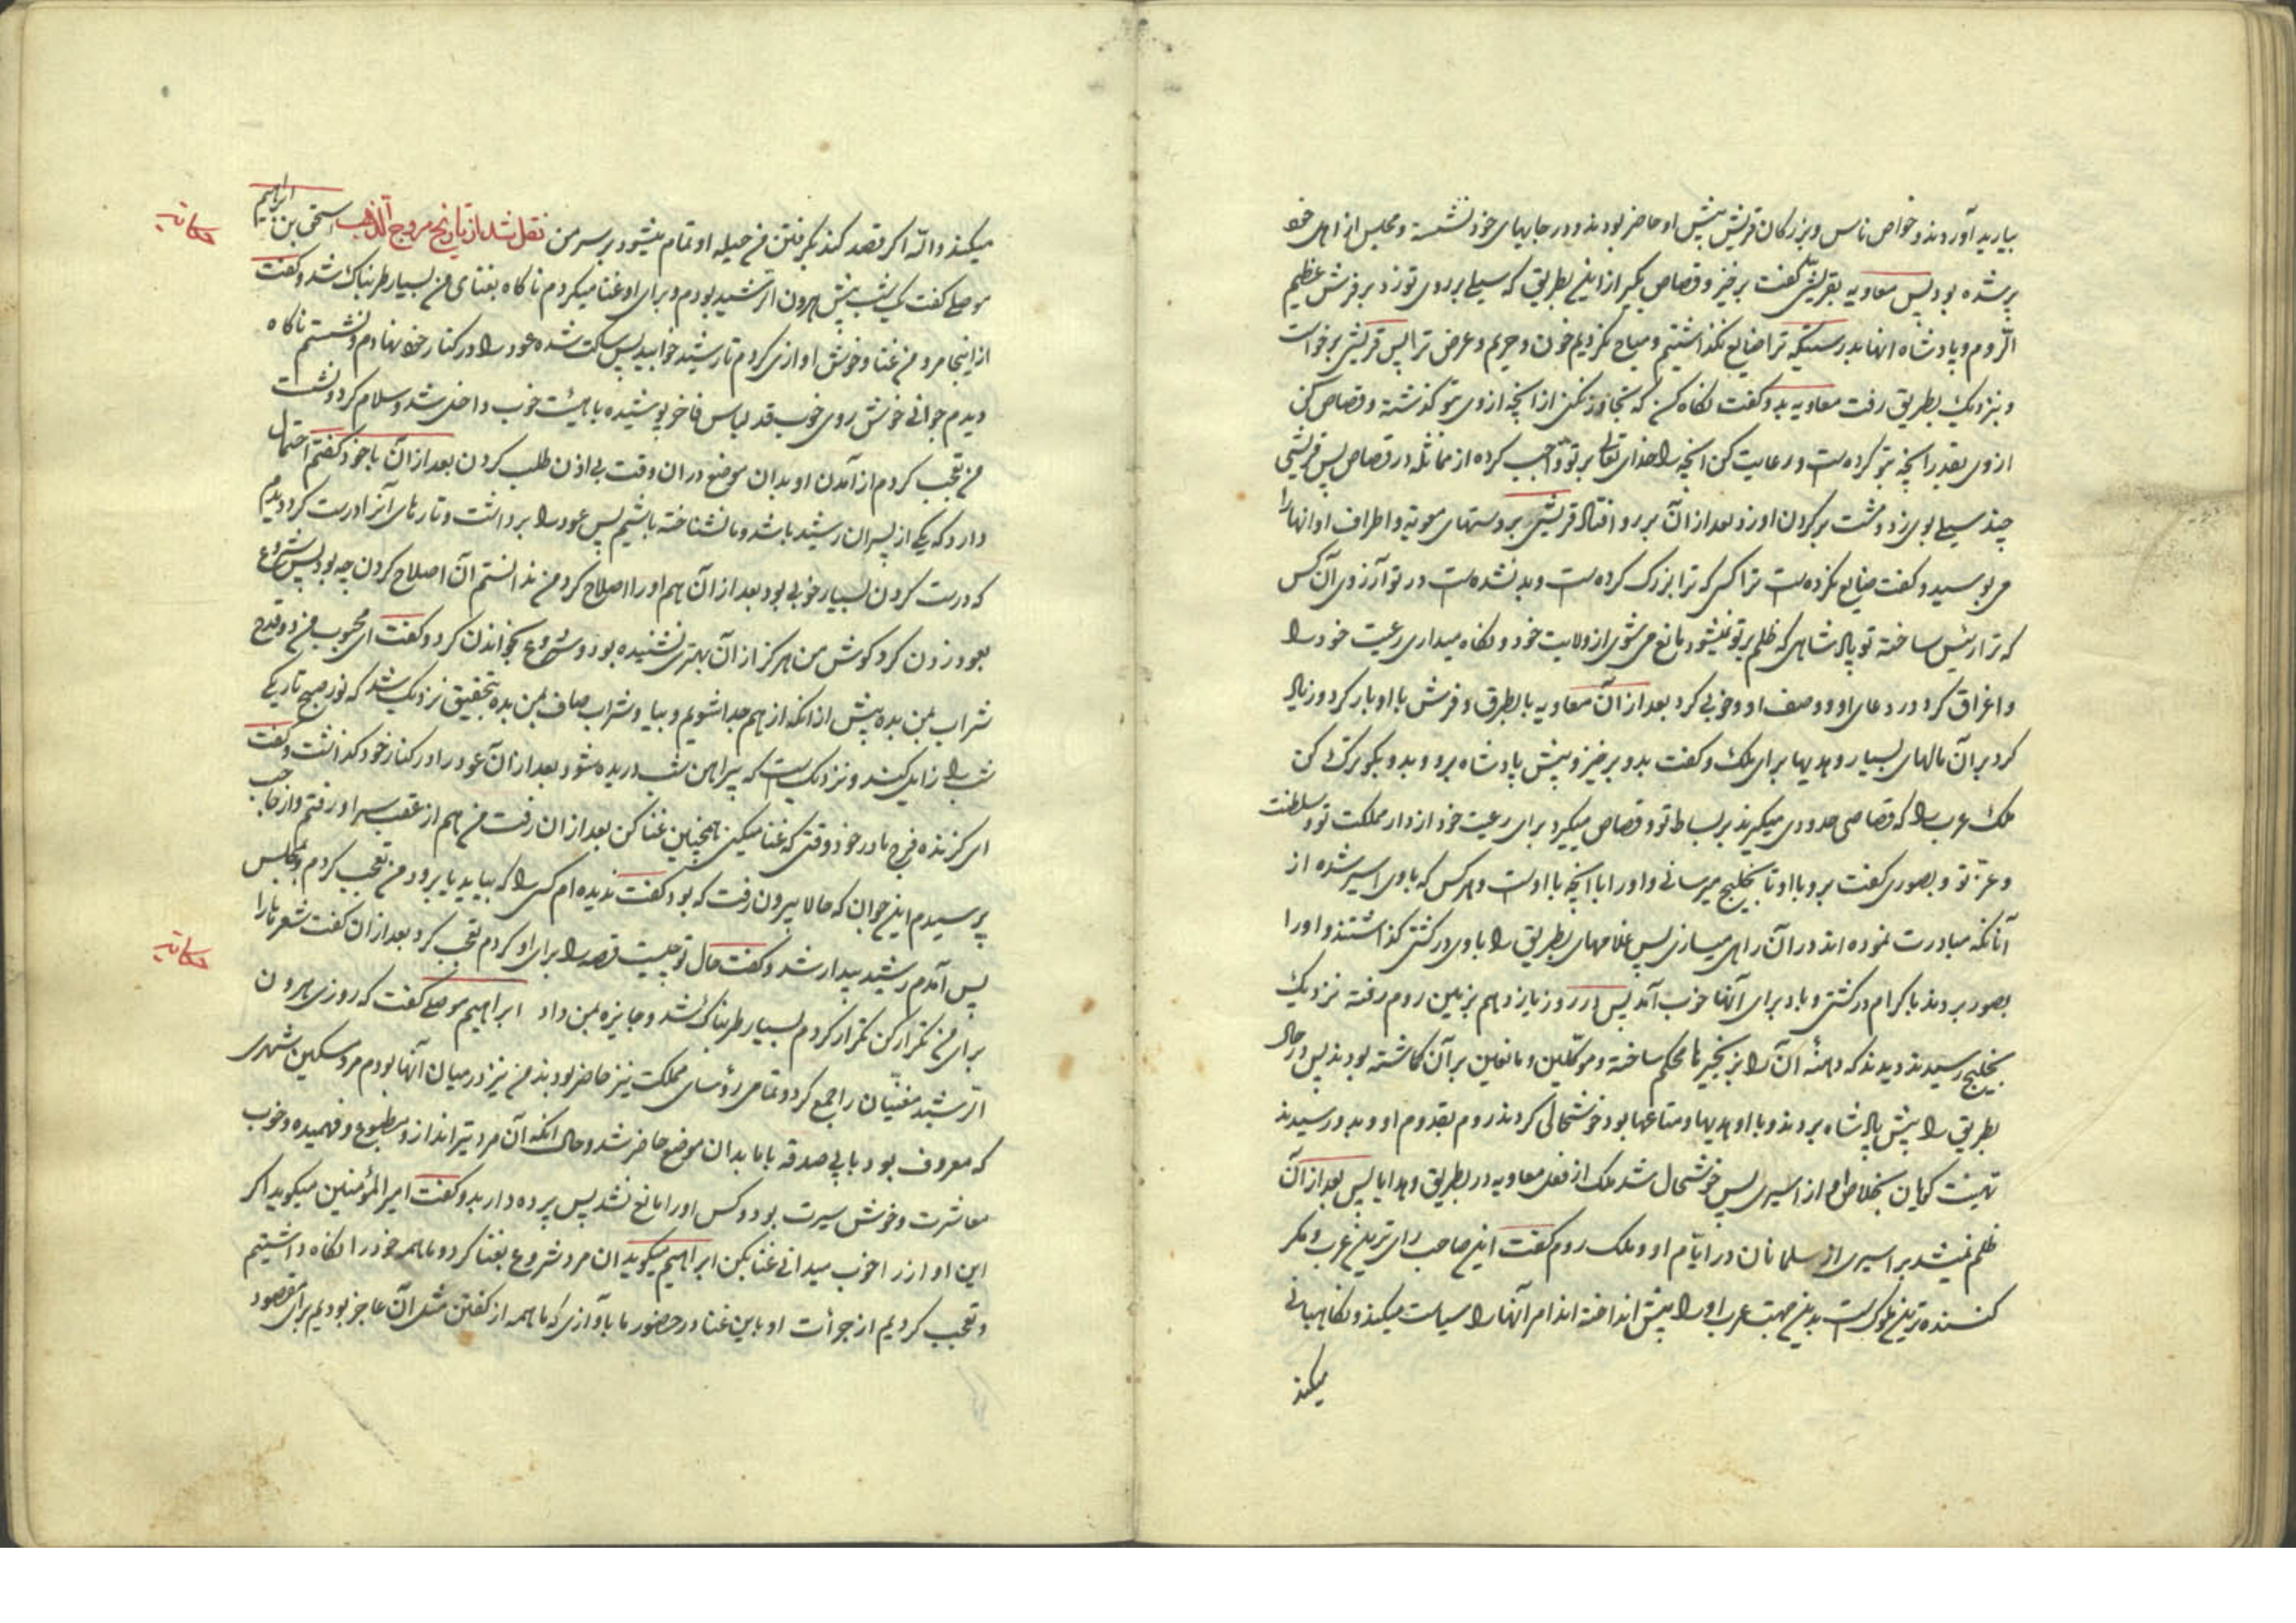 بیارید آوردند و خواص ناس و بزرکان قریش پیش او حاضر بودند و در جایهای خود نشسته و مجلس از اهل خود
پرشده بود پس معاویه بقریشی گفت برخیز و قصاص بکیر از این بطریق که سیلی بر روی تو زد بر فرش عظیم
الروم و پادشاه انها بدرستیکه ترا ضایع نکذاشتیم و مباح نکردیم خون و حریم و عرض ترا پس قریشی برخواست
و بنزدیک بطریق رفت معاویه بدو کفت نکاه کن که تجاوز نکنی از آنچه از وی بتو کذشته و قصاص کنی
از وی بقدر آنچه بتو کرده است و رعایت کن آنچه را خدای تعالی بر تو واجب کرده از مماثله در قصاص پس قریشی
چند سیلی بوی زد و مشت بر کردن او زد بعد از آن برو افتاد قریشی بر دستهای معویه و اطراف او انها را
می بوسید و کفت ضایع نکرده است ترا کسی که ترا بزرک کرده است و بد نشده است در تو آرزوی آن کس
که ترا رئیس ساخته تو پادشاهی که ظلم بر تو نمیشود مانع می شوی از ولایت خود و نکاه میداری رعیت خود را
و اغراق کرد در دعای او و وصف او و خوبی کرد بعد از آن معاویه با بطریق و فرش با او بار کرد و زیاد
کرد بر آن مالهای بسیار و هدیها برای ملک و کفت بدو برخیز و پیش پادشاه برو و بدو بکو ترک کن
ملک عرب را که قصاصی حدودی میکیرند بر بساط تو و قصاص میکیرد برای رعیت خود از دار مملکت تو و سلطنت
و عزّ تو و بصوری کفت برو با او تا بخلیج میرسانی و او را با آنچه با اوست و هر کس که با وی اسیر شده از
آنانکه مبادرت نموده اند در آن راهی میسازی پس غلامهای بطریق را با وی در کشتی کذاشتند و او را
بصور بردند باکرام در کشتی و باد برای آنها خوب آمد پس در روز یازدهم بزمین روم رفته نزدیک
بخلیج رسیدند دیدند که دهنهٔ آن را بزنجیرها محکم ساخته و موکلین و مانعین بر آن کماشته بودند پس در حال
بطریق را پیش پادشاه بردند و با او هدیها و متاعها بود خوشحالی کردند روم بقدوم او و بدو رسیدند
تهنیت کویان بخلاص او از اسیری پس خوشحال شد ملک از فعل معاویه در بطریق و هدایا پس بعد از آن
ظلم نمیشد بر اسیری از مسلمانان در ایام او و ملک روم کفت این صاحب رای ترین عرب و مکر
کننده ترین ملوک است بدین جهت عرب او را پیش انداخته اند امر آنها را سیاست میکند و نکاهبانی
میکند
میکند واللّه اکر قصد کند بکرفتن من حیله او تمام میشود بر سر من نقل شد از تاریخ مروج الذهب اسحق بن ابراهیم
موصلی کفت یک شب پیش هرون الرشید بودم و برای او غنا میکردم ناکاه بغنای من بسیار طربناک شد و کفت
از اینجا مرو من غنا و خوش اوازی کردم تا رشید خوابید پس ساکت شده عود را در کنار خود نهادم و نشستم ناکاه
دیدم جوانی خوش روی خوب قد لباس فاخر پوشیده با هیئت خوب داخل شد و سلام کرد و نشست
من تعجب کردم از آمدن او بدان موضع در ان وقت بی اذن طلب کردن بعد از آن با خود کفتم احتمال
دارد که یکی از پسران رشید باشد و ما نشناخته باشیم پس عود را برداشت و تارهای آنرا درست کرد دیدم
که درست کردن بسیار خوبی بود بعد از آن هم او را اصلاح کرد من ندانستم آن اصلاح کردن چه بود پس شروع
بعود زدن کرد کوش من هرکز از آن بهتری نشنیده بود و شروع بخواندن کرد و کفت ای محبوب من دو قدح
شراب بمن بده پیش از انکه از هم جدا شویم و بیا و شراب صاف بمن بده بتحقیق نزدیک شد که نور صبح تاریکی
شب را زایل کند و نزدیک است که پیراهن شب دریده شود بعد از آن عود را در کنار خود کذاشت و کفت
ای کزنده فرج مادر خود وقتی که غنا میکنی همچنین غنا کن بعد از ان رفت من هم از عقب سر او رفتم و از حاجب
پرسیدم این جوان که حالا بیرون رفت که بود کفت ندیده ام کسی را که بیاید یا برود من تعجب کردم و بمجلس
پس آمدم رشید بیدار شد و کفت حال تو چیست قصه را برای او کردم تعجب کرد بعد از ان کفت شعرها را
برای من تکرار کن تکرار کردم بسیار طربناک شد و جایزه بمن داد ابراهیم موصلی کفت که روزی هرون
الرشید مغنیان را جمع کرد و تمامی رؤسای مملکت نیز حاضر بودند من نیز در میان آنها بودم مرد مسکین شهری
که معروف بود بابی صدقه با ما بدان موضع حاضر شد و حال انکه آن مرد تیز انداز و مطبوع و فهمیده و خوب
معاشرت و خوش سیرت بود و کس او را مانع نشد پس پرده دار بدو کفت امیر المؤمنین میکوید اکر
این اواز را خوب میدانی غنا بکن ابراهیم میکوید ان مرد شروع بغنا کرد و ما همه خود را نکاه داشتیم
و تعجب کردیم از جرأت او باین غنا در حضور ما باوازی که ما همه از کفتن مثل آن عاجز بودیم برای مقصود
حکایة
حکایة